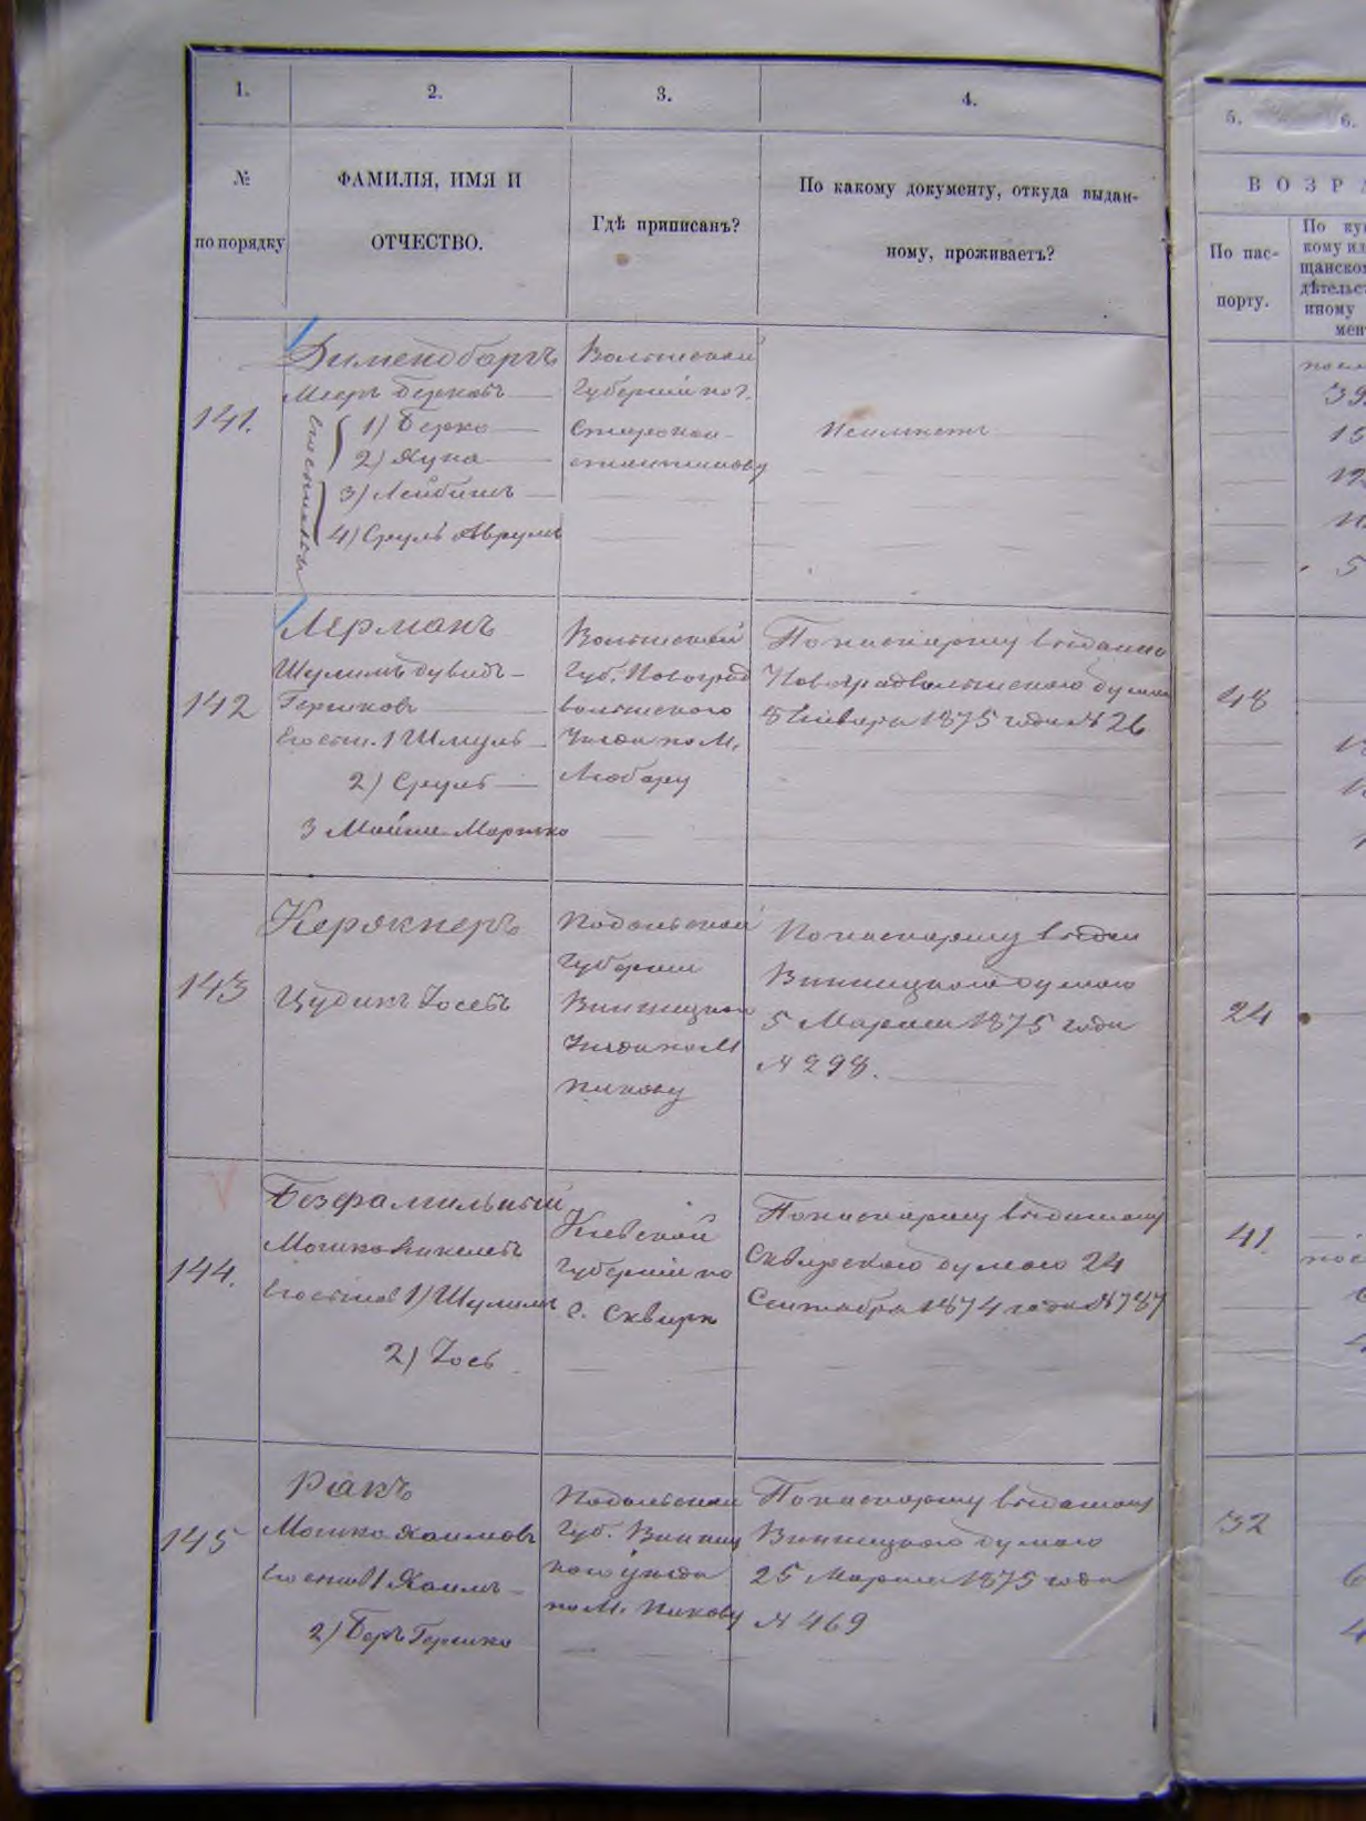 1.
2.
3.
4.
№
по порядку
ФАМИЛІЯ, ИМЯ И
ОТЧЕСТВО.
Гдѣ приписанъ?
По какому документу, откуда выдан-
ному, проживаетъ?
141.
Мееръ Берковъ
1) Берко
2) Хуна
3) Лейбишъ
4) Сруль Аврумъ
Волынской
Губерніи по г.
Староконстантинову
142
Лерманъ
Шулимъ Дувидъ-
Гершковъ
Его сын. 1 Шмуль
2) Сруль
Волынской
Губ. Новоград
волынского
Уѣзда по М.
Любару
По паспорту выданно
Новоградволынского думою
8 Января 1875 года № 26
143
Подольской
Губерніи
Винницкого
Уѣзда по М
Пикову
По паспорту выдан
Винницкого думою
5 Марта 1875 года
№ 298.
144.
Безфамильный
Его сынов 1) Шулимъ
2) Іось
Кіевской
Губерніи по
г. Сквирѣ
По паспорту выданному
Сквирского думою 24
Сентября 1874 года № 787
145
Ракъ
Мошко Хаимовъ
Его сынов 1 Хаимъ
2) Беръ Гершко
Подольской
Губ. Винниц
кого уѣзда
по М. Пикову
По паспорту выданному
Винницкого думою
25 Марта 1875 года
№ 469
5.
6.
ВОЗРА
По пас-
порту.
По куп
кому ил
щанском
дѣтельст
иному
мен
39
15
12
5
48
24
41
32
6
4